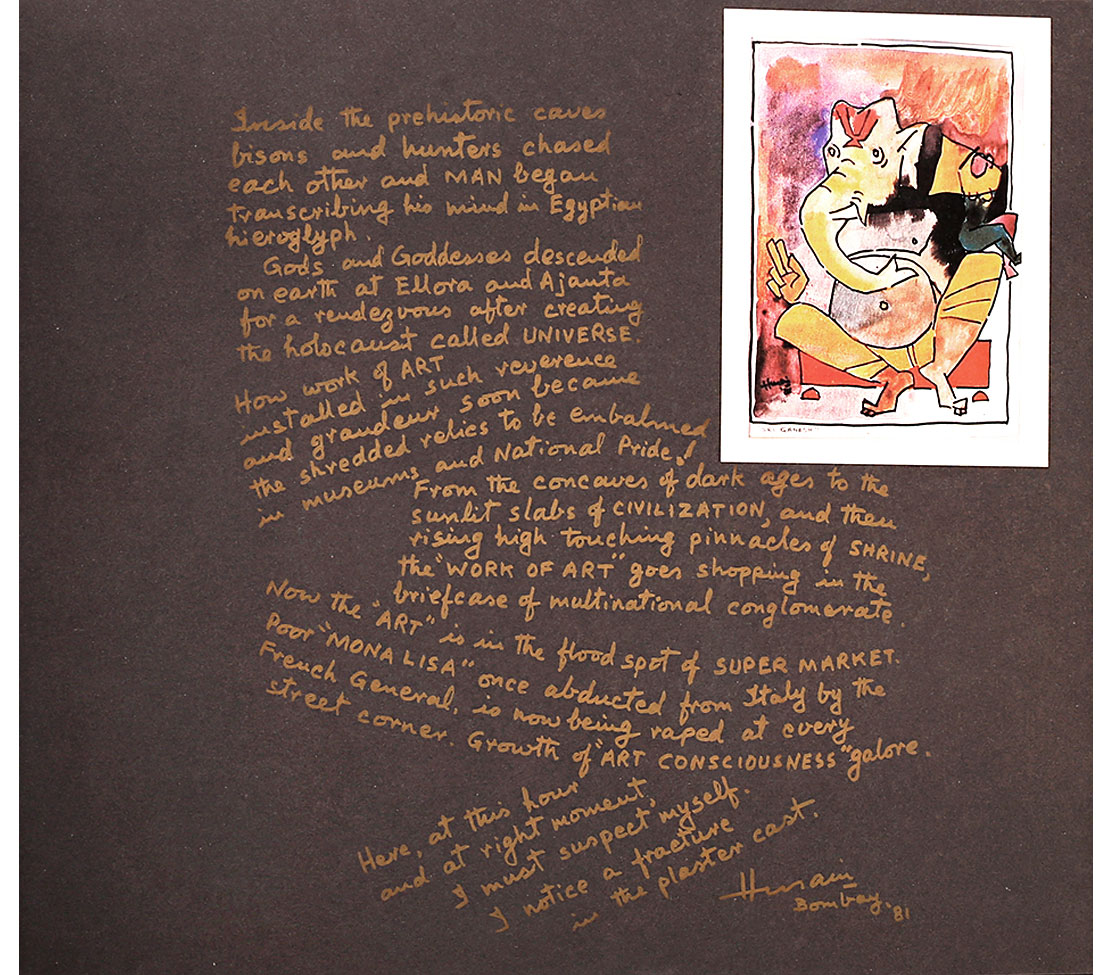 Inside the prehistoric caves
bisons and hunters chased
each other and MAN began
transcribing his mind in Egyptian
hieroglyph.
Gods and Goddesses descended
on earth at Ellora and Ajanta
for a rendezvous after creating
the holocaust called UNIVERSE.
How work of ART
installed in such reverence
and grandeur soon became
the shredded relics to be embalmed
in museums and National Pride!
From the concaves of dark ages to the
sunlit slabs of CIVILIZATION, and then
rising high touching pinnacles of SHRINE,
the "WORK OF ART" goes shopping in the
briefcase of multinational conglomerate.
Now the "ART" is in the flood spot of SUPER MARKET.
Poor "MONA LISA" once abducted from Italy by the
French General, is now being raped at every
street corner. Growth of "ART CONSCIOUSNESS" galore.
Here, at this hour
and at right moment,
I must suspect myself.
I notice a fracture
in the plaster cast.
Husain
Bombay. 81
Husain
GANESH